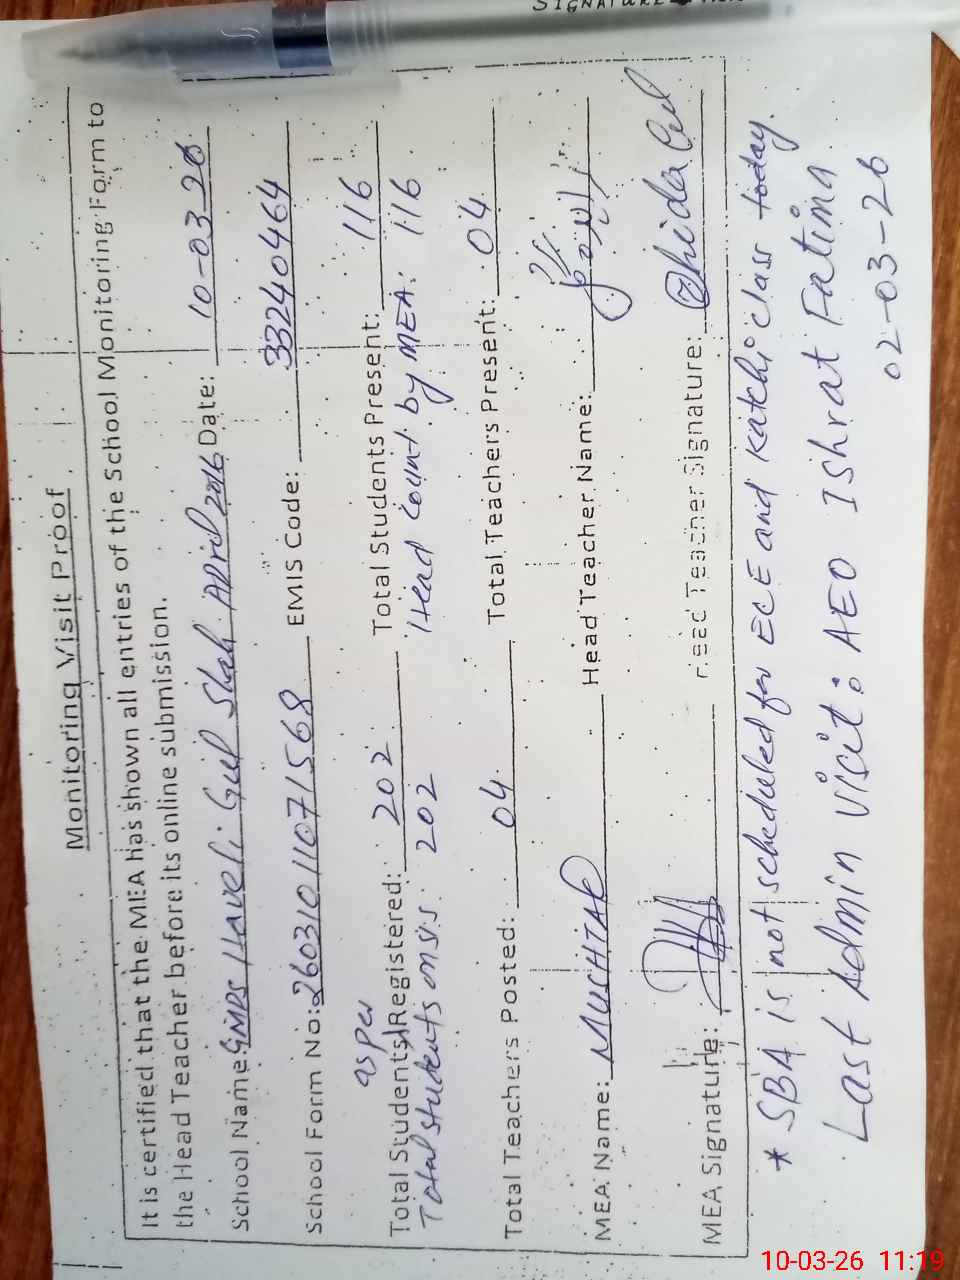 SIGNATURE
Monitoring Visit Proof
It is certified that the MEA has shown all entries of the School Monitoring Form to
the Head Teacher before its online submission.
School Name: GMPS Haveli Gul Shah Date: 10-03-26
School Form No: 2603101107/1568 EMIS Code: 33240464
as per
Total Students Registered: 202 Total Students Present: 116
Total students on sis: 202 Head Count by MEA: 116
Total Teachers Posted: 04 Total Teachers Present: 04
MEA Name: MUSHTAQ Head Teacher Name:
MEA Signature: Head Teacher Signature:
* SBA is not scheduled for ECE and Katchi class today.
Last Admin Visit: AEO Ishrat Fatima
02-03-26
10-03-26 11:19